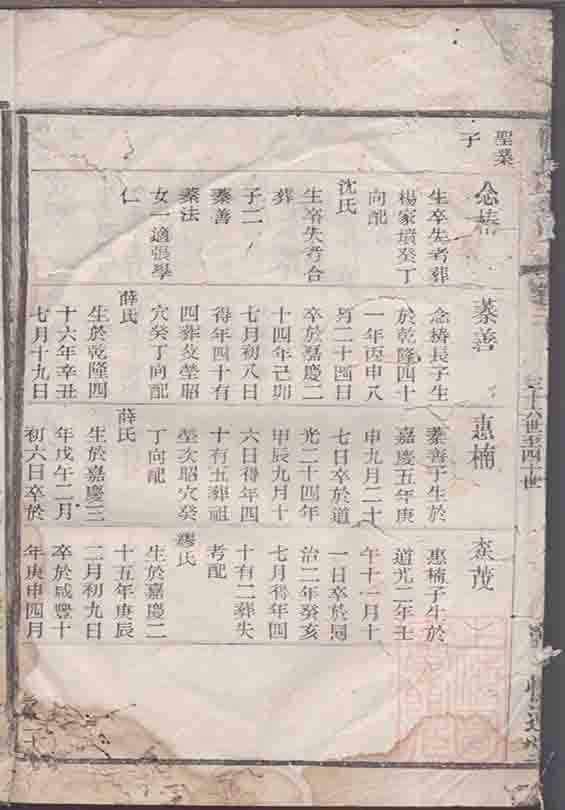 聖業
子
念椿
生卒失考葬
楊家墳癸丁
向配
沈氏
生卒失考合
葬
子二
蓁善
蓁法
女一適張學
仁
蓁善
念椿長子生
於乾隆四十
一年丙申八
月二十四日
卒於嘉慶二
十四年己卯
七月初八日
得年四十有
四葬父塋昭
穴癸丁向配
薛氏
生於乾隆四
十六年辛丑
七月十九日
惠楠
蓁善子生於
嘉慶五年庚
申九月二十
七日卒於道
光二十四年
甲辰九月十
六日得年四
十有五葬祖
塋次昭穴癸
丁向配
薛氏
生於嘉慶三
年戊午二月
初六日卒於
茂
惠楠子生於
道光二年壬
午十一月十
一日卒於同
治二年癸亥
七月得年四
十有二葬失
考配
繆氏
生於嘉慶二
十五年庚辰
二月初九日
卒於咸豐十
年庚申四月
三十六世至四十世